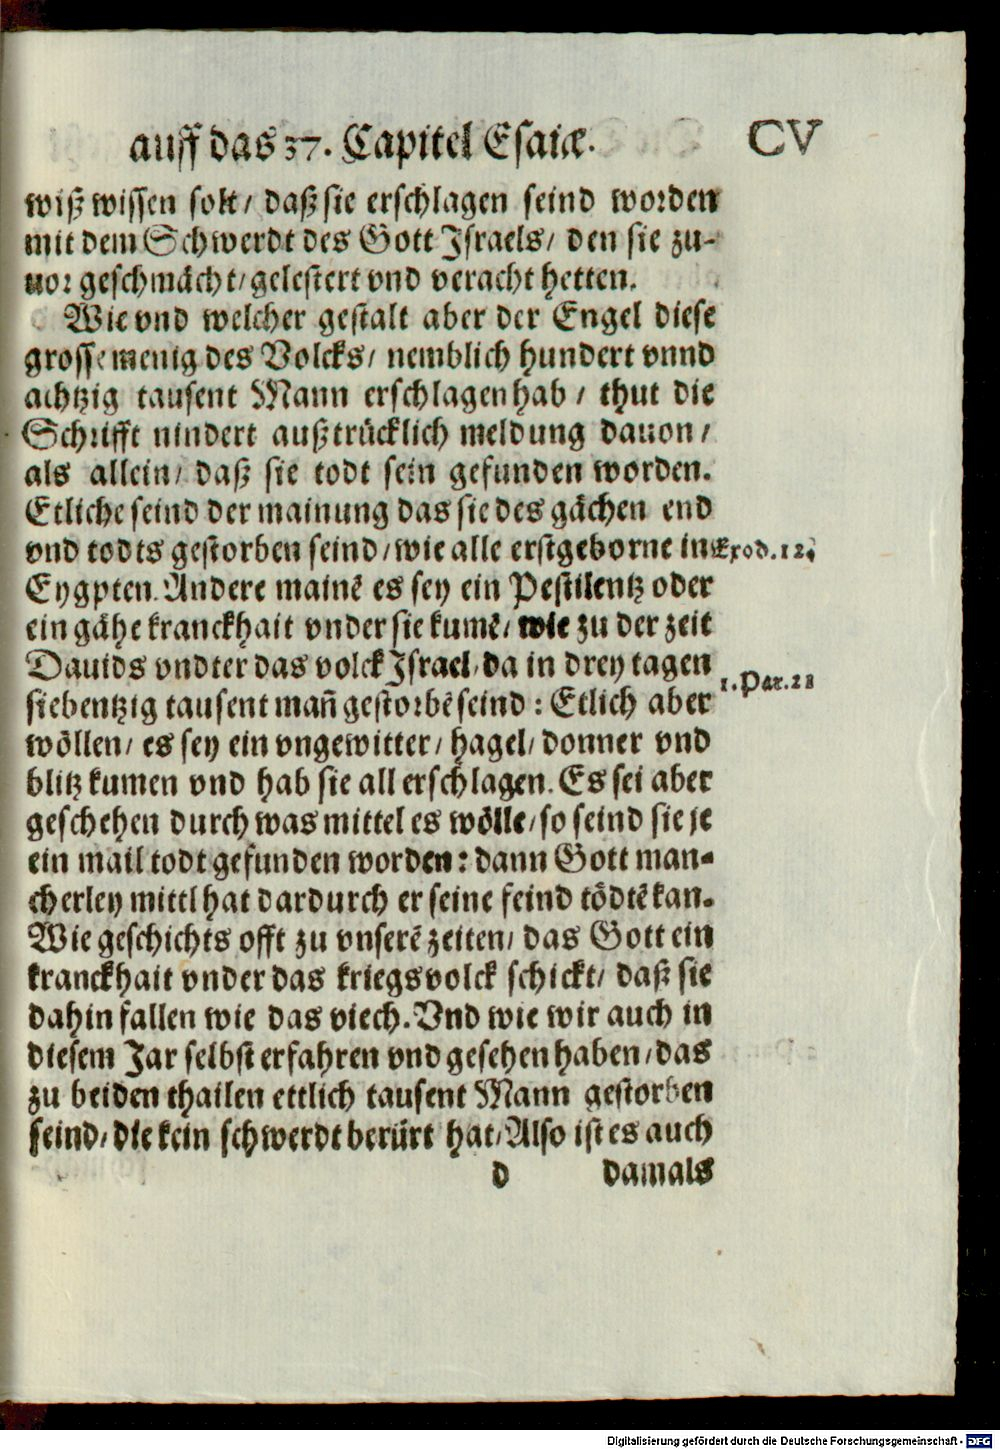 auff das 37. Capitel Esaiæ. CV
wiß wissen solt / daß sie erschlagen seind worden
mit dem Schwerdt des Gott Israels / den sie zu-
uor geschmächt / gelestert vnd veracht hetten.
Wie vnd welcher gestalt aber der Engel diese
grosse menig des Volcks / nemblich hundert vnnd
achtzig tausent Mann erschlagen hab / thut die
Schrifft nindert außtrücklich meldung dauon /
als allein / daß sie todt sein gefunden worden.
Etliche seind der mainung das sie des gächen end
vnd todts gestorben seind / wie alle erstgeborne in
Exod. 12.
Eygpten. Andere mainē es sey ein Pestilentz oder
ein gähe kranckhait vnder sie kumē / wie zu der zeit
Dauids vndter das volck Israel / da in drey tagen
1. Par. 21
siebentzig tausent mañ gestorbē seind : Etlich aber
wöllen / es sey ein vngewitter / hagel / donner vnd
blitz kumen vnd hab sie all erschlagen. Es sei aber
geschehen durch was mittel es wölle / so seind sie je
ein mail todt gefunden worden : dann Gott man-
cherley mittl hat dardurch er seine feind tödtē kan.
Wie geschichts offt zu vnserē zeiten / das Gott ein
kranckhait vnder das kriegsvolck schickt / daß sie
dahin fallen wie das viech. Vnd wie wir auch in
diesem Jar selbst erfahren vnd gesehen haben / das
zu beiden thailen ettlich tausent Mann gestorben
seind / die kein schwerdt berürt hat / Also ist es auch
d damals
Digitalisierung gefördert durch die Deutsche Forschungsgemeinschaft - DFG